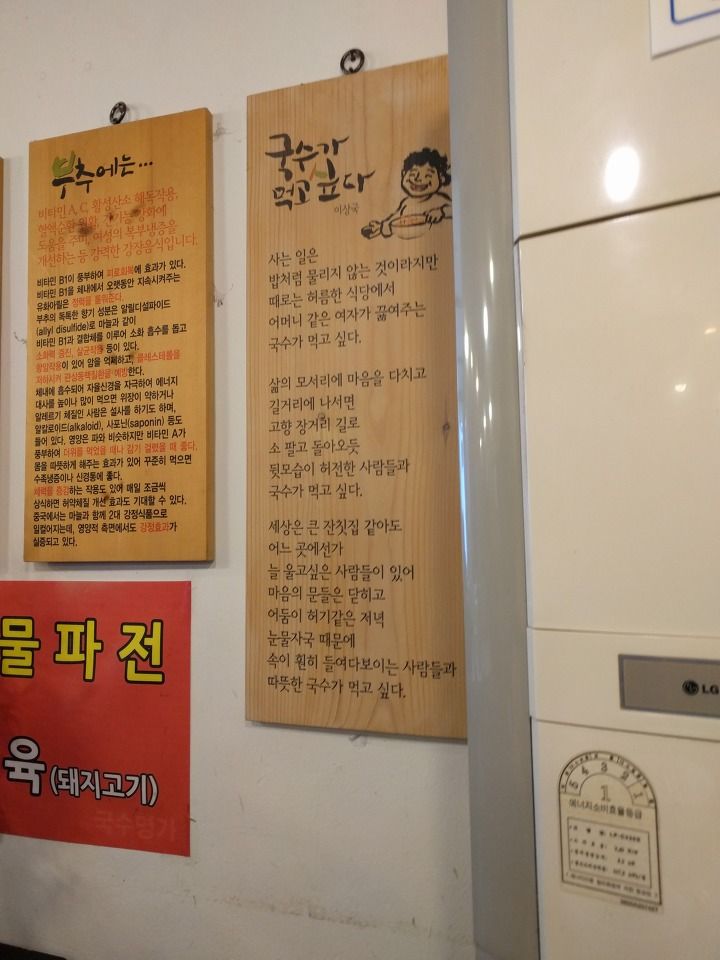 부추에는...
비타민 A, C, 활성산소 해독작용,
혈액순환 원활, 간기능 강화에
도움을 주며, 여성의 복부냉증을
개선하는 등 강력한 강장음식입니다.
비타민 B1이 풍부하여 피로회복에 효과가 있다.
비타민 B1을 체내에서 오랫동안 지속시켜주는
유화아릴은 정력을 돋워준다.
부추의 독특한 향기 성분은 알릴디설파이드
(allyl disulfide)로 마늘과 같이
비타민 B1과 결합체를 이루어 소화 흡수를 돕고
소화력 증진, 살균작용 등이 있다.
항암작용이 있어 암을 억제하고, 콜레스테롤을
저하시켜 관상동맥질환을 예방한다.
체내에 흡수되어 자율신경을 자극하여 에너지
대사를 높이나 많이 먹으면 위장이 약하거나
알레르기 체질인 사람은 설사를 하기도 하며,
알칼로이드(alkaloid), 사포닌(saponin) 등도
들어 있다. 영양은 파와 비슷하지만 비타민 A가
풍부하여 더위를 먹었을 때나 감기 걸렸을 때 좋다.
몸을 따뜻하게 해주는 효과가 있어 꾸준히 먹으면
수족냉증이나 신경통에 좋다.
세력을 증강하는 작용도 있어 매일 조금씩
상식하면 허약체질 개선 효과도 기대할 수 있다.
중국에서는 마늘과 함께 2대 강정식품으로
일컬어지는데, 영양적 측면에서도 강정효과가
실증되고 있다.
국수가
먹고 싶다
이상국
사는 일은
밥처럼 물리지 않는 것이라지만
때로는 허름한 식당에서
어머니 같은 여자가 끓여주는
국수가 먹고 싶다.
삶의 모서리에 마음을 다치고
길거리에 나서면
고향 장거리 길로
소 팔고 돌아오듯
뒷모습이 허전한 사람들과
국수가 먹고 싶다.
세상은 큰 잔칫집 같아도
어느 곳에선가
늘 울고싶은 사람들이 있어
마음의 문들은 닫히고
어둠이 허기같은 저녁
눈물자국 때문에
속이 훤히 들여다보이는 사람들과
따뜻한 국수가 먹고 싶다.
물파전
육(돼지고기)
국수명가
LG
5 4 3 2 1
1
에너지소비효율등급